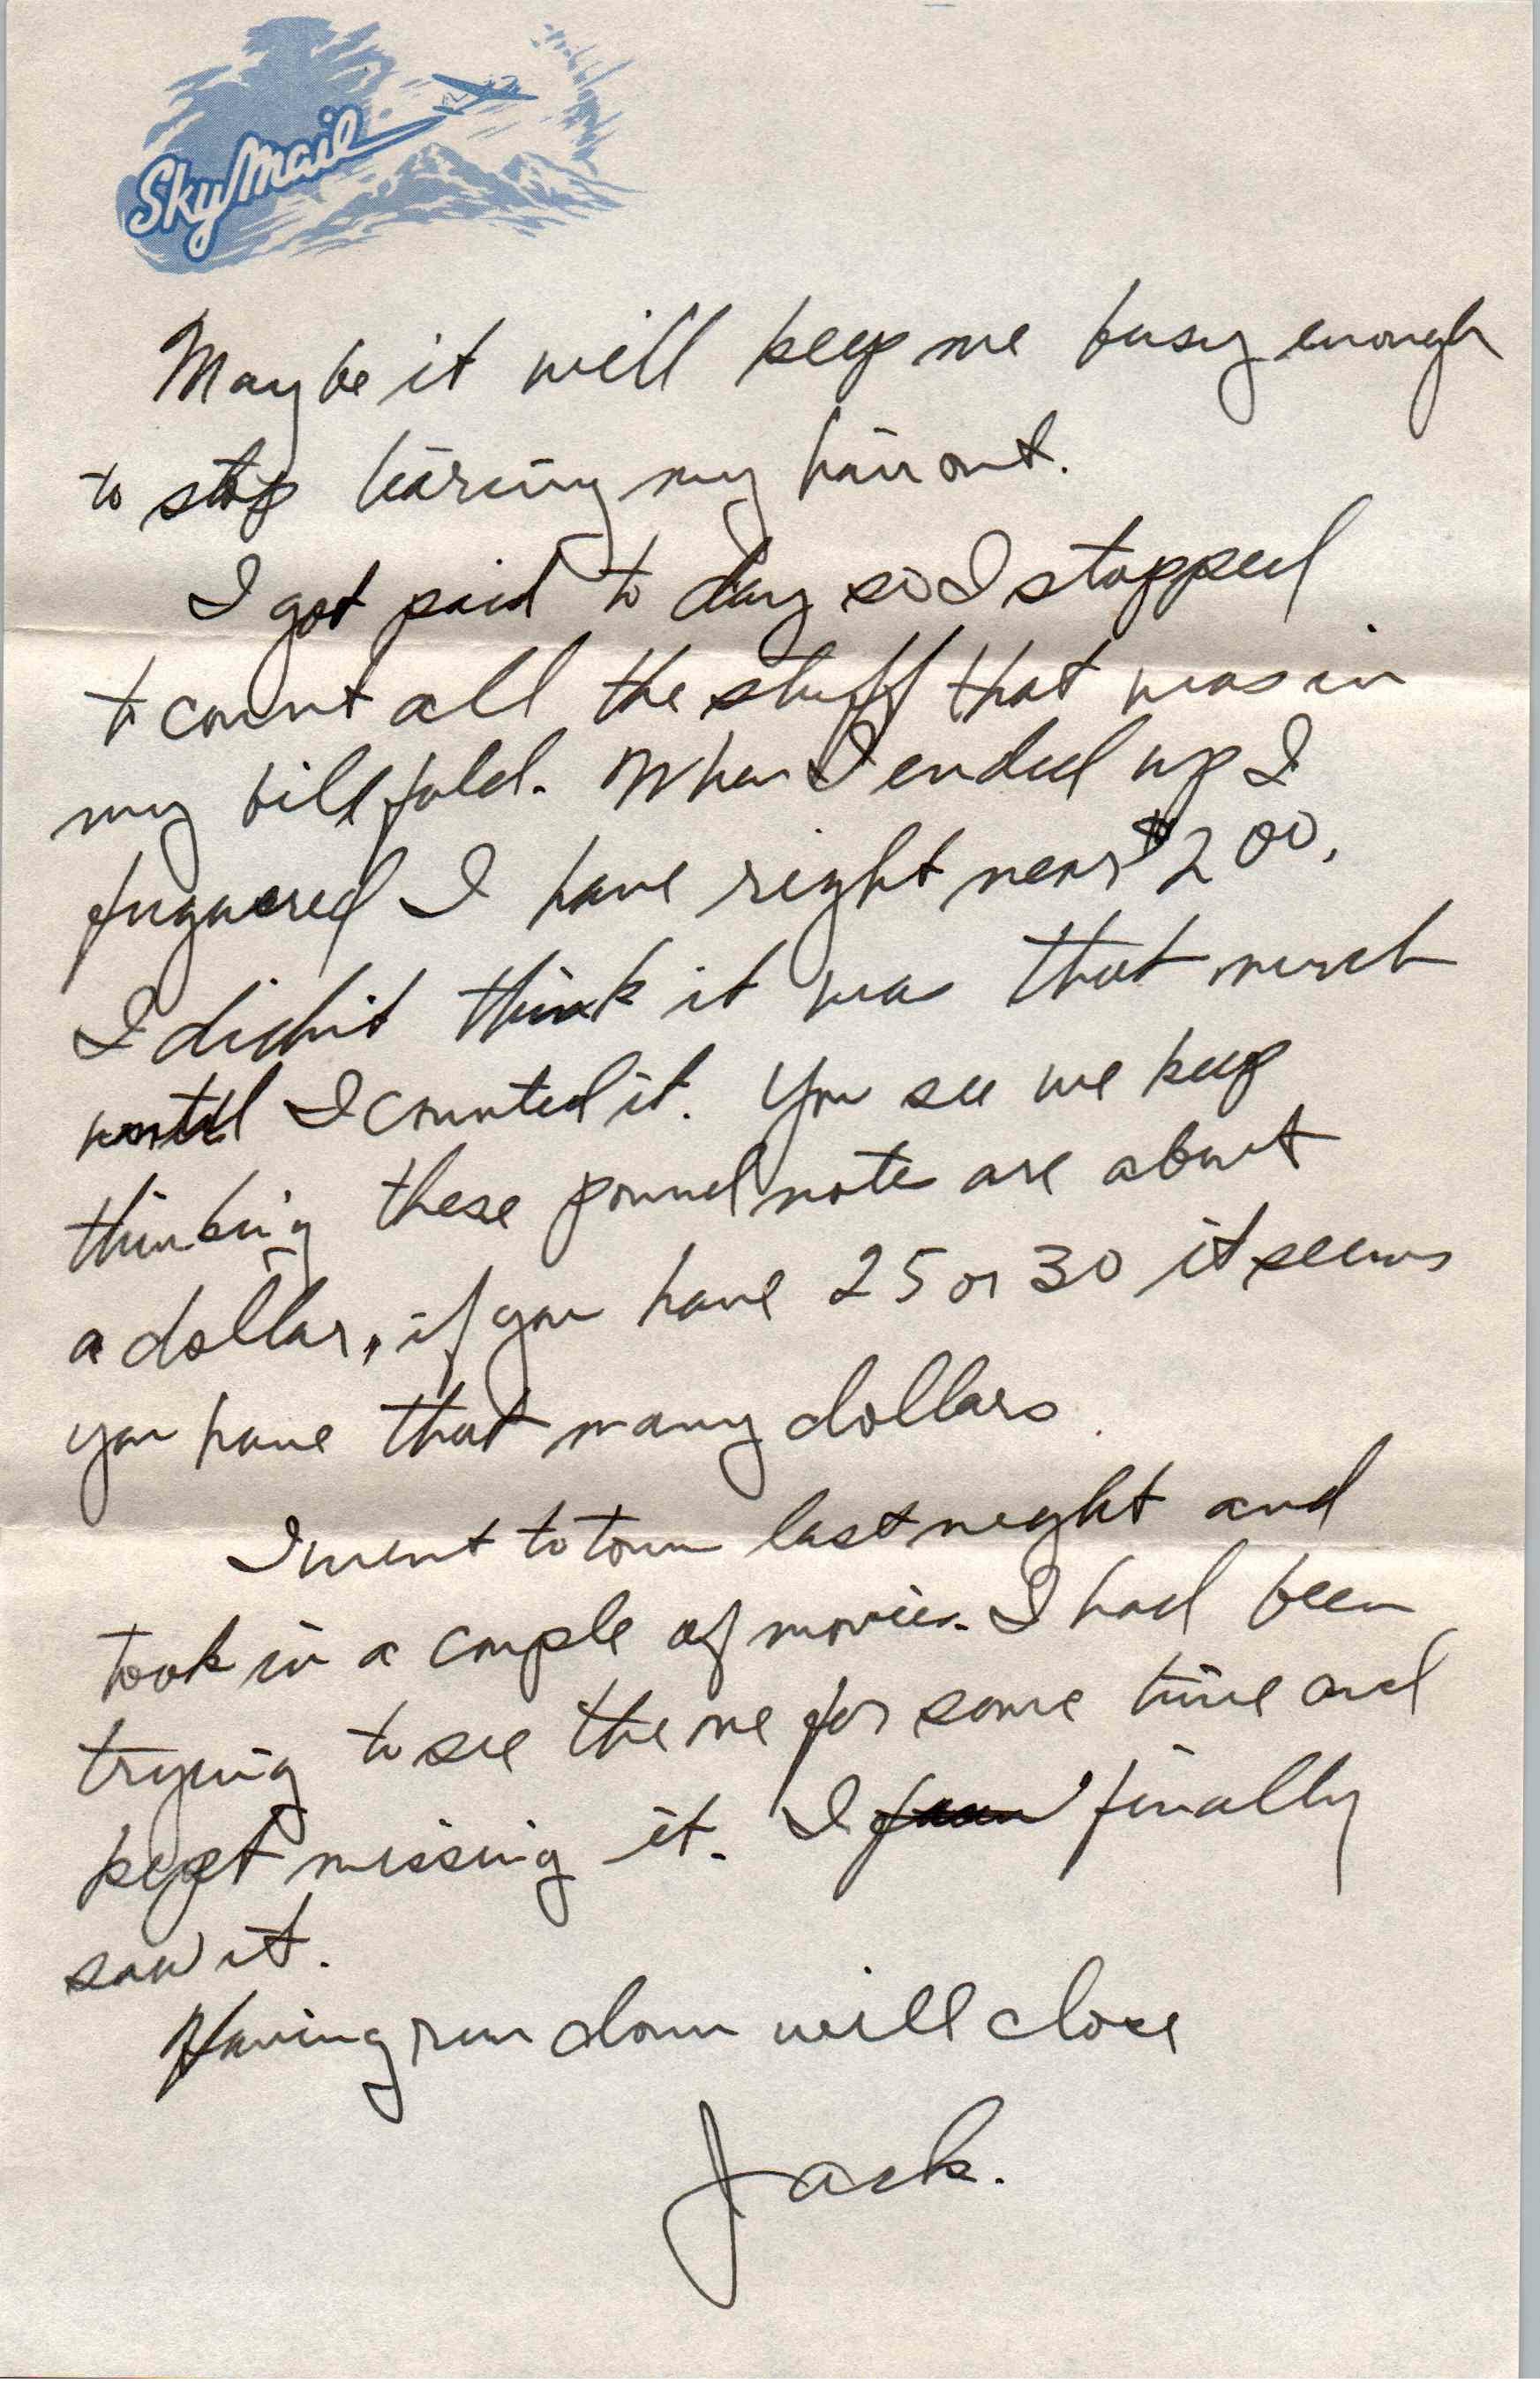 Sky Mail
May be it will keep me busy enough
to stop tearing my hair out.
I got paid to day so I stopped
to count all the stuff that was in
my bill fold. When I ended up I
fuguered I have right near $200.
I didn't think it was that much
until I counted it. You see we keep
thinking these pound note are about
a dollar, if you have 25 or 30 it seems
you have that many dollars.
I went to town last night and
took in a couple of movies. I had been
trying to see the one for some time and
kept missing it. I finally
saw it.
Having run down will close
Jack.